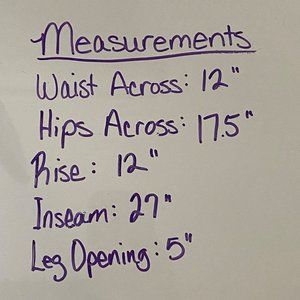 Measurements
Waist Across: 12"
Hips Across: 17.5"
Rise: 12"
Inseam: 27"
Leg Opening: 5"